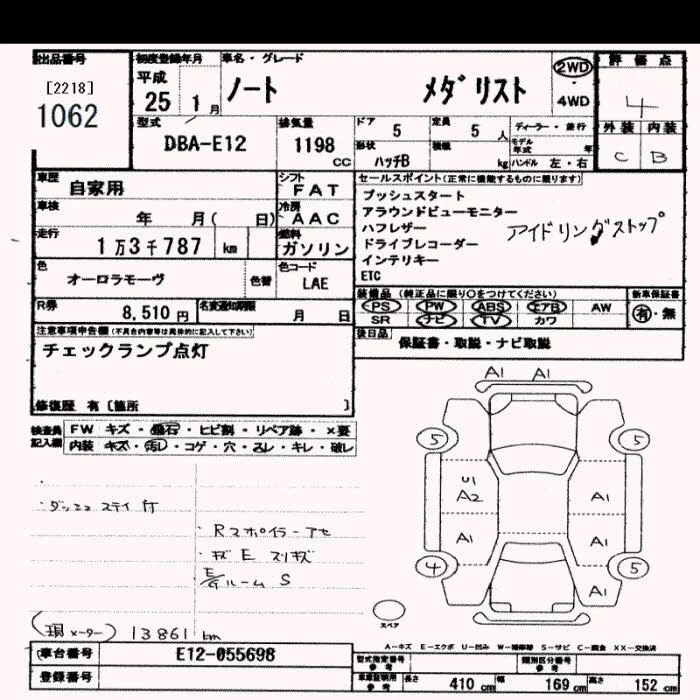 出品番号 初度登録年月 車名・グレード 評価点
[2218] 平成 ノート メダリスト 2WD 4
1062 25 1月 4WD
型式 排気量 ドア 5 定員 5人 ディーラー・並行 外装 内装
DBA-E12 1198 cc 形状 ハッチB 積載 kg モデル年式 年 ハンドル 左・右 C B
車歴 自家用 シフト FAT セールスポイント(正常に機能するものに限ります)
車検 年 月( 日) 冷房 AAC プッシュスタート
アラウンドビューモニター
走行 1万3千787 km 燃料 ガソリン ハフレザー アイドリングストップ
ドライブレコーダー
色 オーロラモーヴ 色替 色コード LAE インテリキー
ETC
R券 8,510円 名変通知期限 月 日 装備品 (純正品に限り○をつけてください) 新車保証書
PS PW ABS エアB AW 有・無
SR ナビ TV カワ
注意事項申告欄(不具合内容等は具体的に記入して下さい) 後日品 保証書・取説・ナビ取説
チェックランプ点灯
修復歴 有〔箇所 〕
検査員記入欄 FW キズ・飛石・ヒビ割・リペア跡・×要
内装 キズ・汚レ・コゲ・穴・スレ・キレ・破レ
A1 A1
5 5
U1
A2 A1
A1 A1
4 5
A1
ダッシュ ステイ 付
・Rスポイラーアセ
・キズ E スリキズ
E/Gルーム S
スペア
(現メーター) 13861 km
A-キズ E-エクボ U-凹み W-補修跡 S-サビ C-腐食 XX-交換済
車台番号 E12-055698 型式指定番号 参考 類別区分番号 参考
登録番号 車庫証明用 参考 長さ 410 cm 幅 169 cm 高さ 152 cm